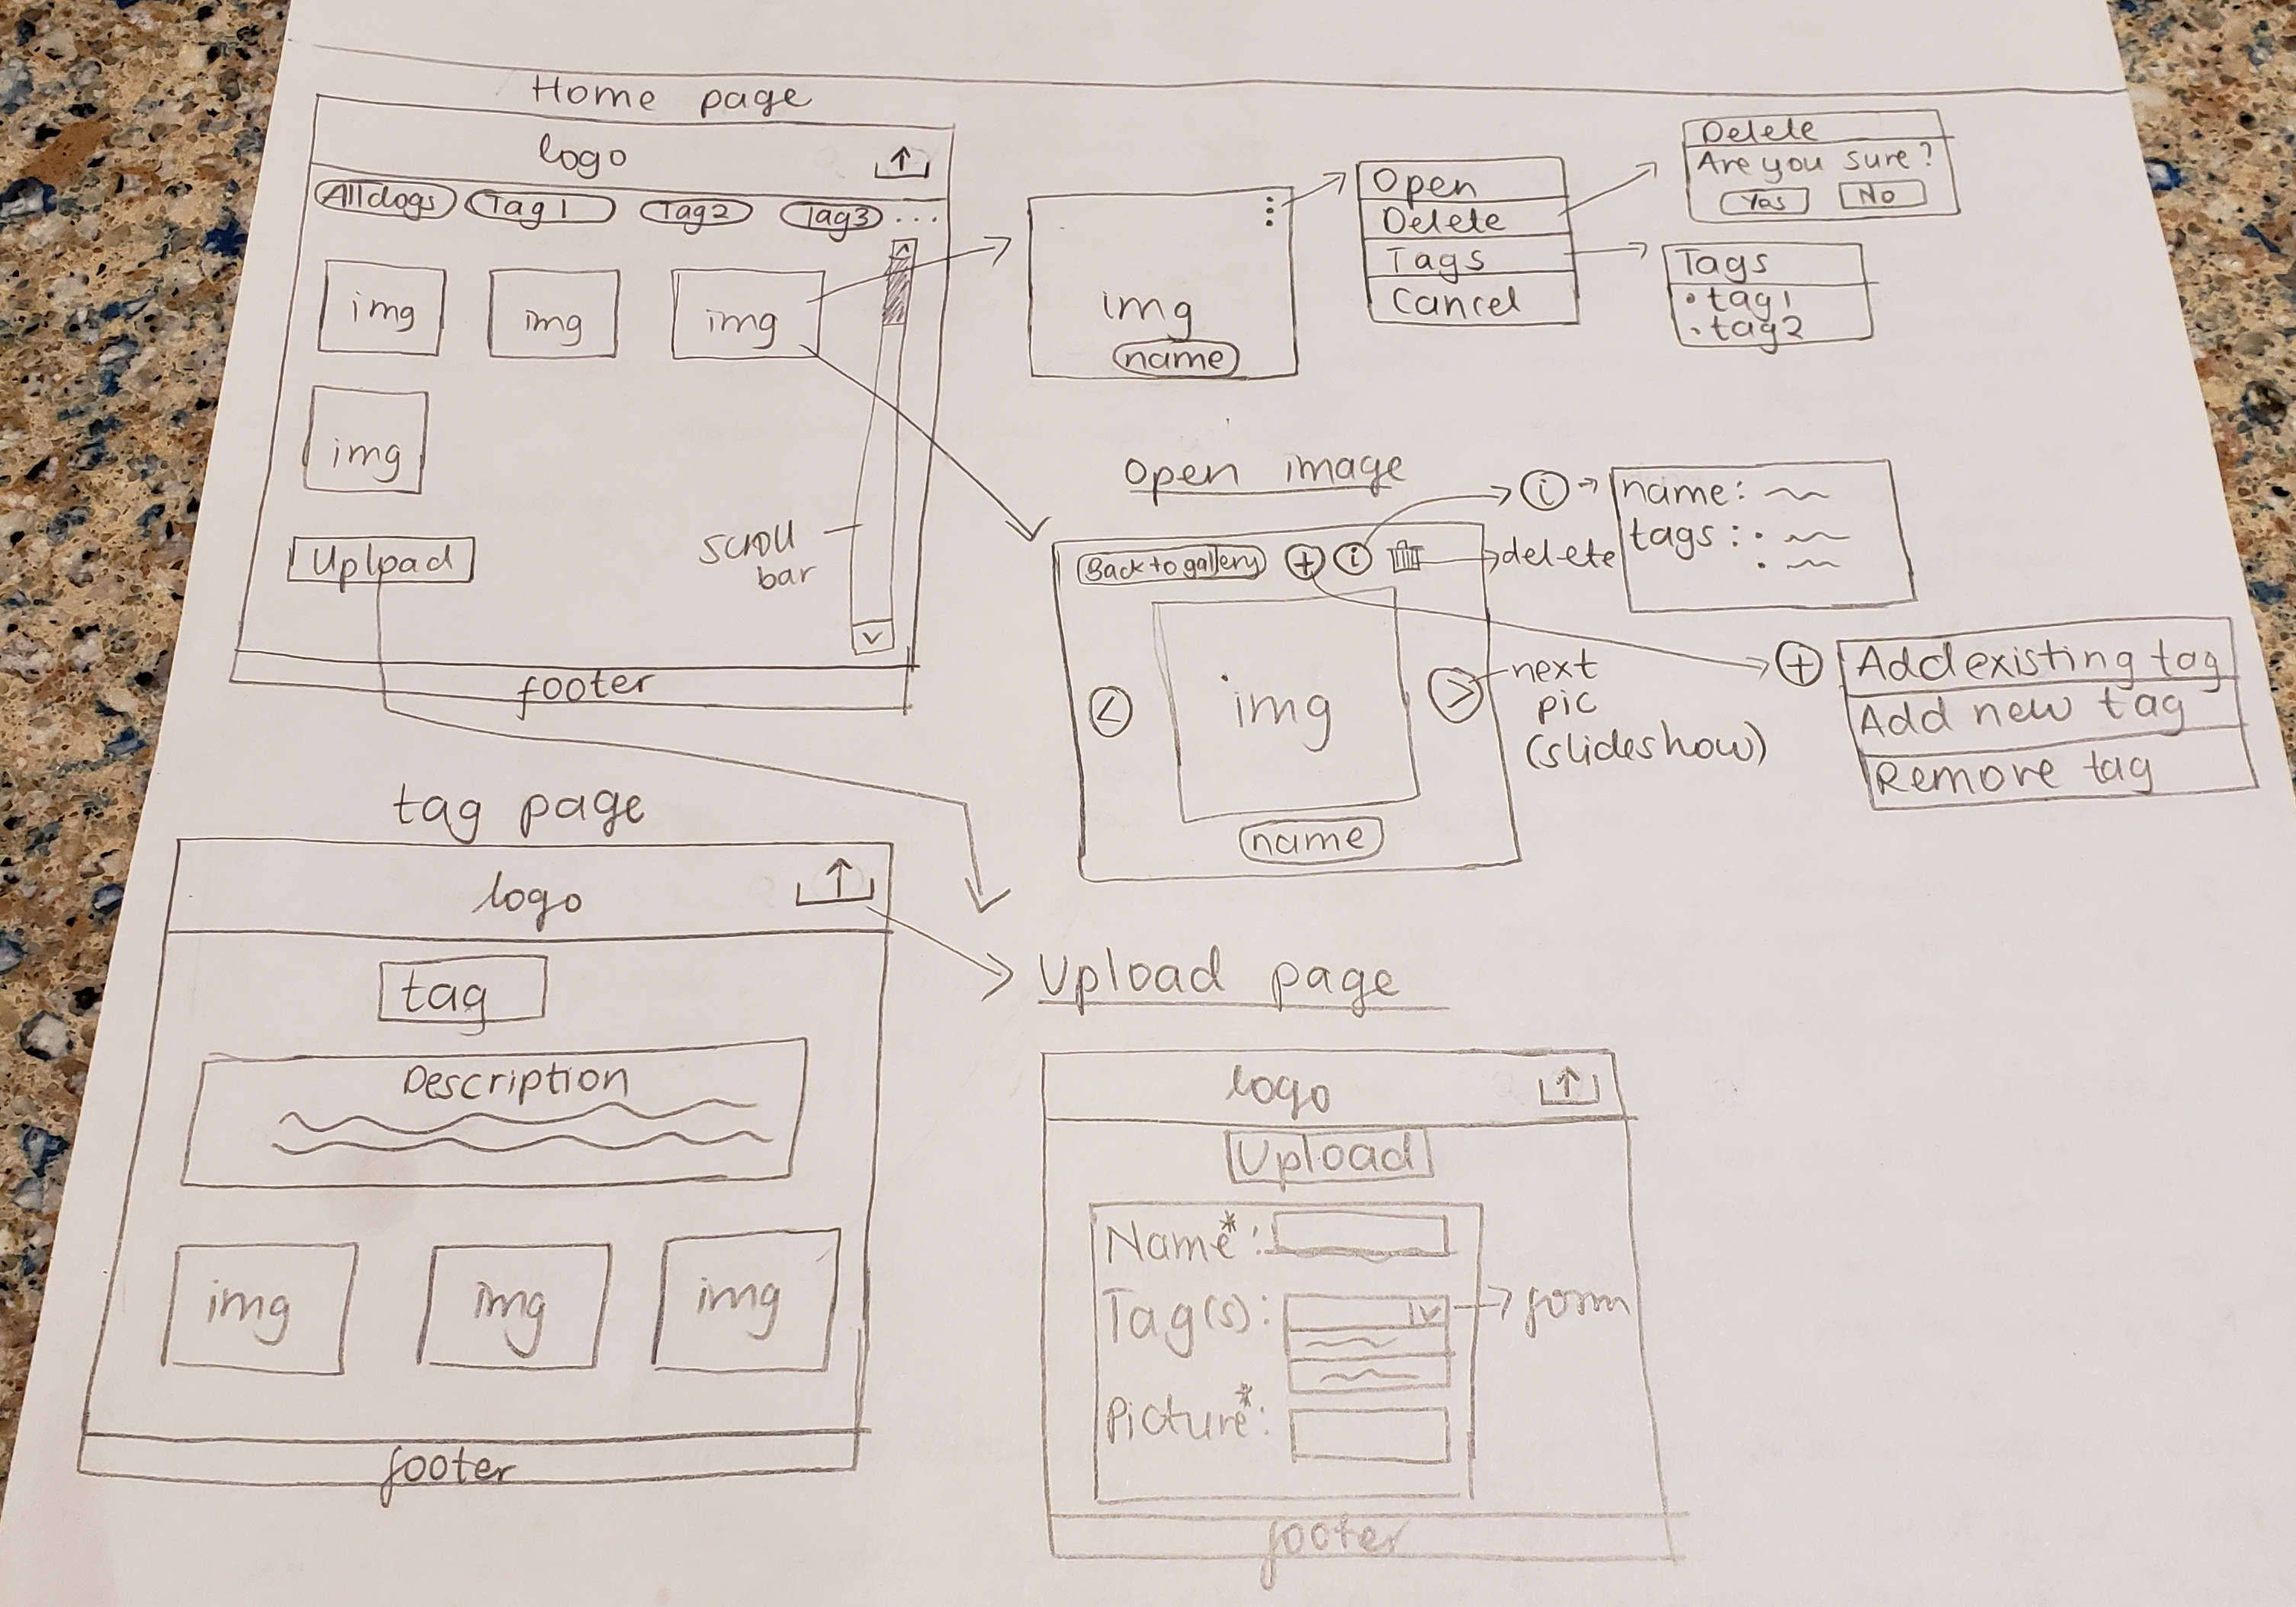 Home page
logo
All dogs Tag 1 Tag2 Tag3 ...
img img img
img
Upload
scroll
bar
footer
img
name
Open
Delete
Tags
Cancel
Delete
Are you sure?
Yes No
Tags
• tag1
• tag2
Open image
Back to gallery + i
delete
< img >
name
next
pic
(slideshow)
i
name:
tags:
+
Add existing tag
Add new tag
Remove tag
tag page
logo
tag
Description
img img img
footer
Upload page
logo
Upload
Name*:
Tag(s):
Picture*:
form
footer